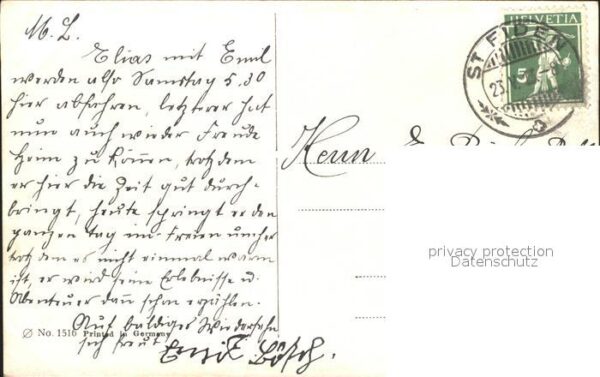 M. L.
Elias mit Emil
werden also Samstag 5.30
hier abfahren, letzterer hat
nun auch wieder Freude
heim zu können, trotzdem
er hier die Zeit gut durch-
bringt, heute springt er den
ganzen Tag im Freien umher
trotzdem es nicht einmal warm
ist, er wird seine Erlebnisse u.
Abenteuer dann schon erzählen.
Auf baldiges Wiedersehn
sich freut
Emil Bösch.
No. 1516 Printed in Germany
HELVETIA
5
ST. FIDEN
23
Herrn
privacy protection
Datenschutz